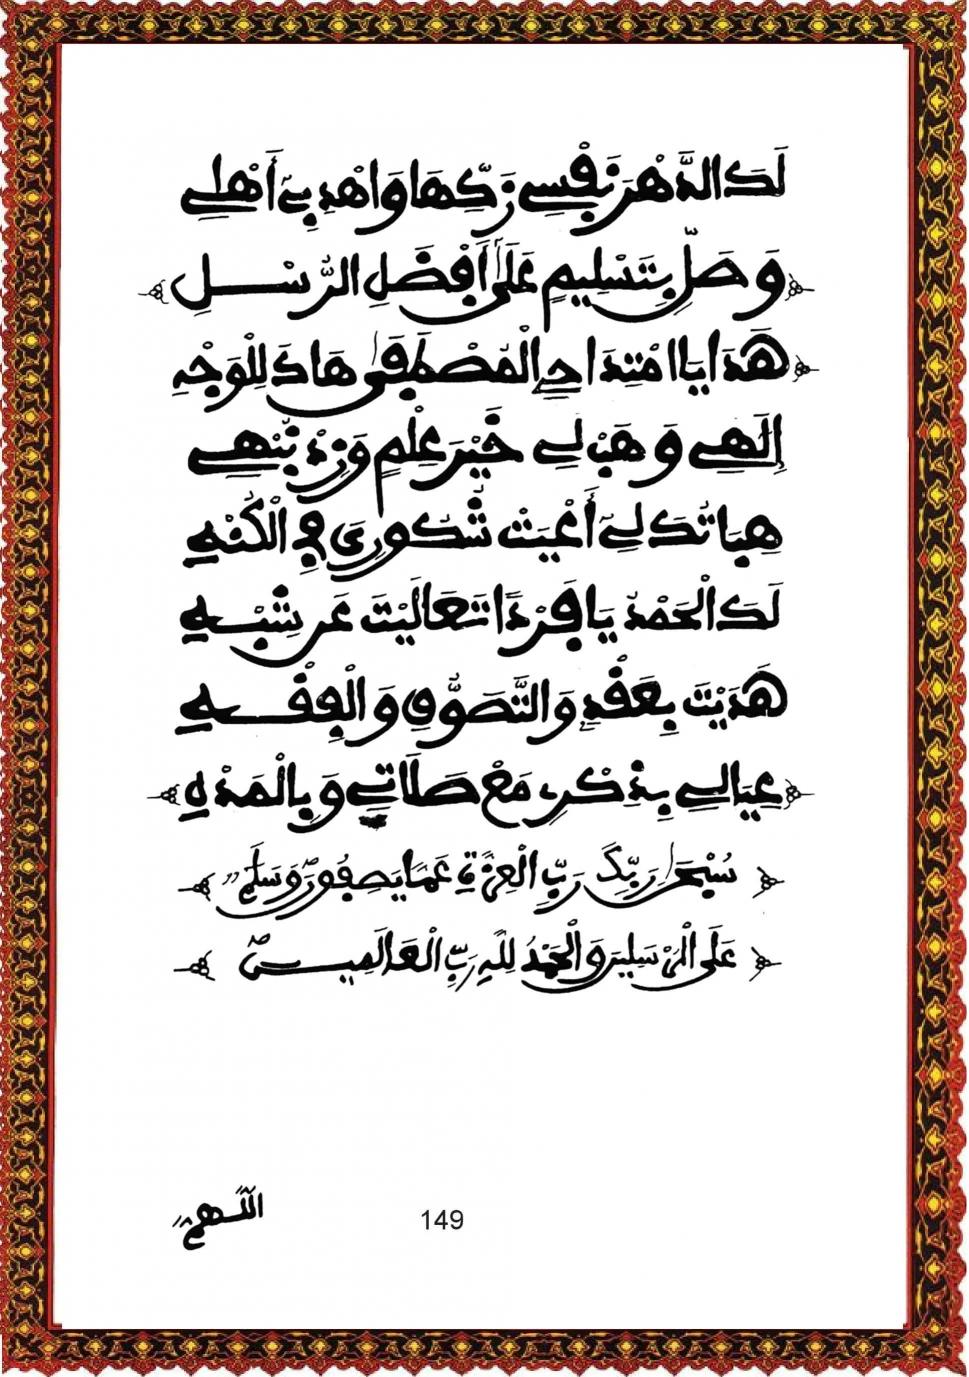 لَكَ الدَّهْرَ نَفْسِي زَكِّهَا وَاهْدِ بِيَ أَهْلِي
وَصَلِّ بِتَسْلِيمٍ عَلَى أَفْضَلِ الرُّسْلِ
هَدَايَا امْتِدَاحِي الْمُصْطَفَى هَادَ لِلْوَجْهِ
إِلَهِي وَهَبْ لِي خَيْرَ عِلْمٍ وَزِدْ نُبْهِي
هِبَاتُكَ لِي أَعْيَتْ شُكُورِيَ فِي الْكُنْهِ
لَكَ الْحَمْدُ يَا فَرْدًا تَعَالَيْتَ عَن شِبْهِ
هَدَيْتَ بِعَقْدٍ وَالتَّصَوُّفِ وَالْفِقْهِ
عِيَالِي بِذِكْرٍ مَعْ صَلَاتِي وَبِالْمَدْهِ
سُبْحَانَ رَبِّكَ رَبِّ الْعِزَّةِ عَمَّا يَصِفُونَ وَسَلَامٌ
عَلَى الْمُرْسَلِينَ وَالْحَمْدُ لِلَّهِ رَبِّ الْعَالَمِينَ
اللَّهُمَّ
149